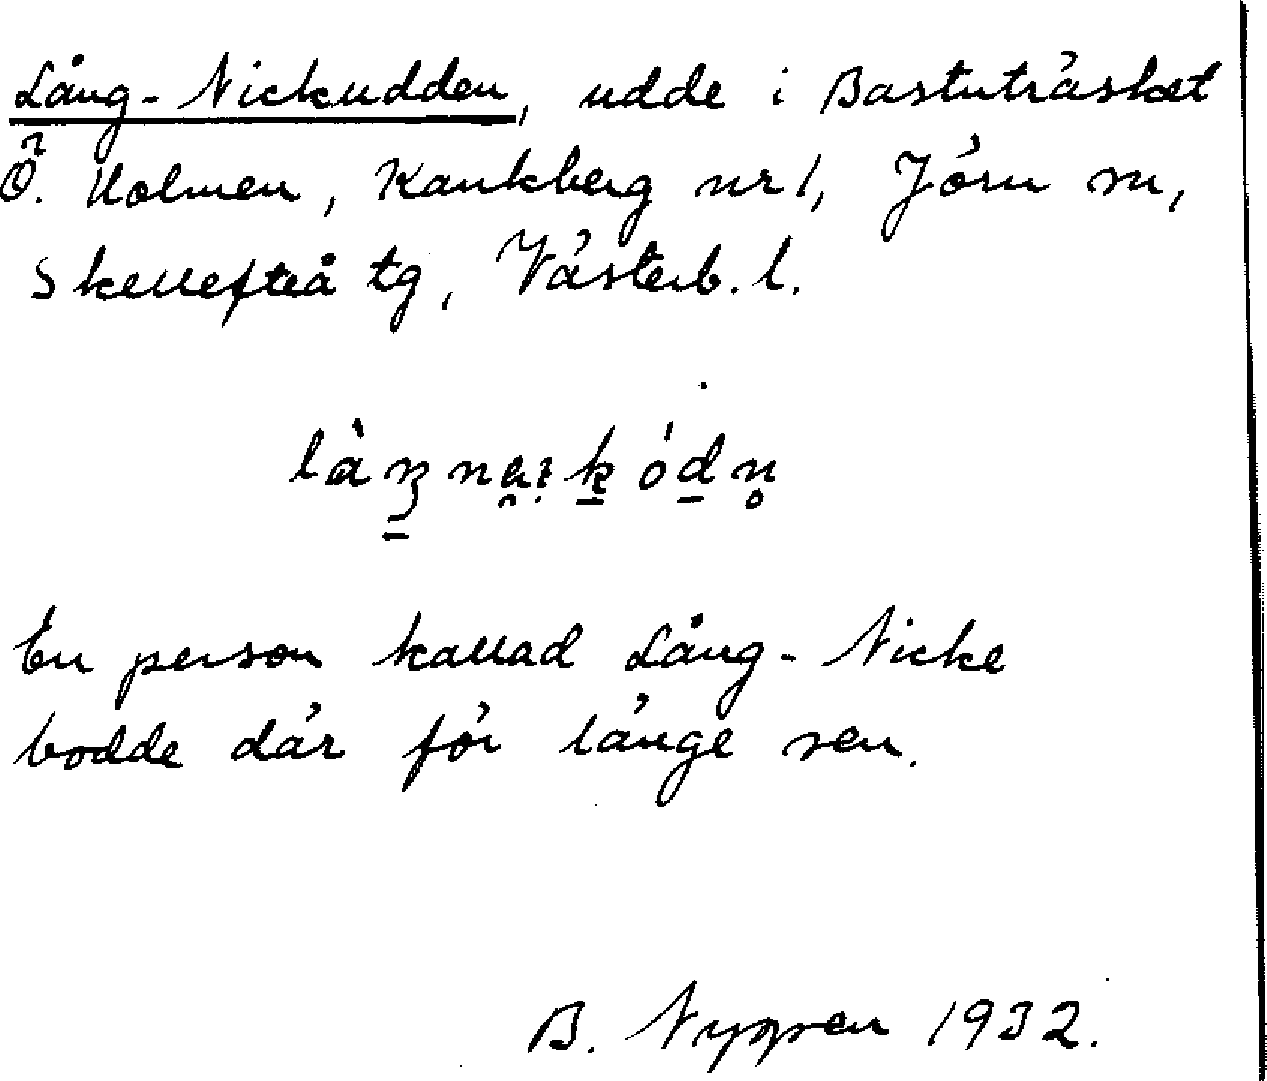 Lång-Nickudden, udde i Bastuträsket
Ö. Holmen, Kankberg nr 1, Jörn sn,
Skellefteå tg, Västerb. l.
En person kallad Lång-Nicke
bodde där för länge sen.
B. Nygren 1932.